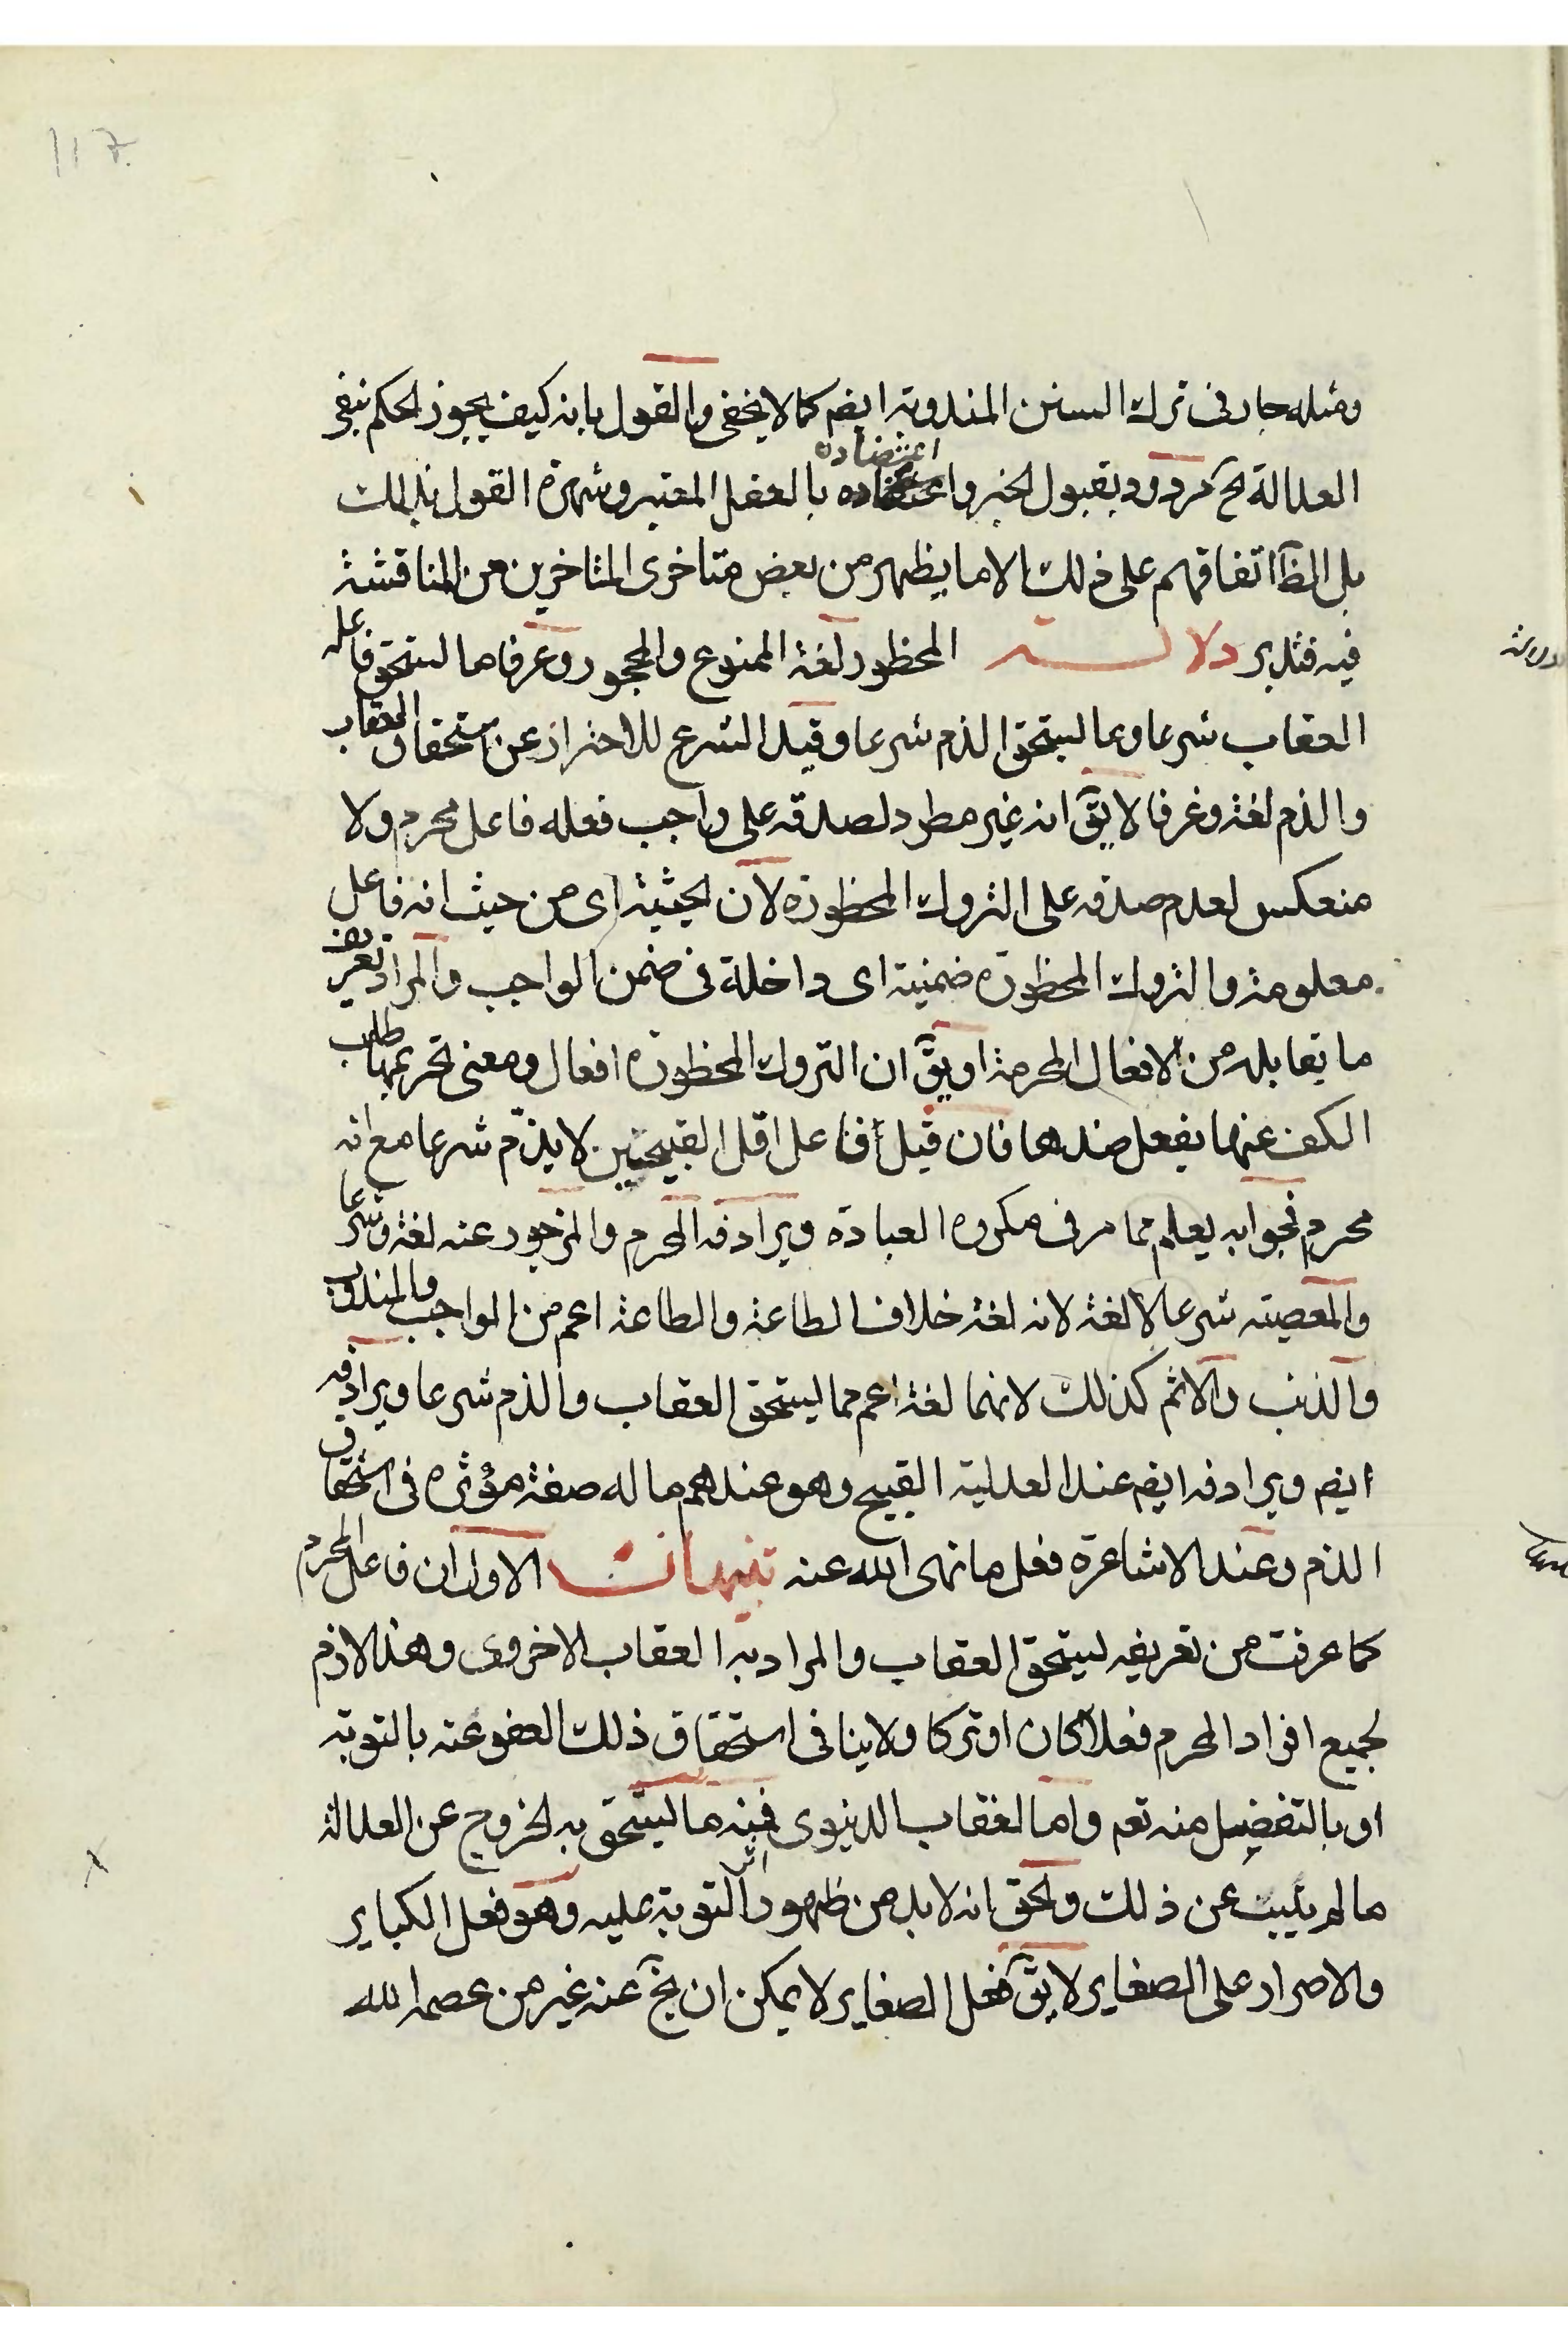 117
ومثله جار فى ترك السنن المندوبة ايضم كما لا يخفى والقول بانه كيف يجوز الحكم بنفى
العدالة ح مردود بقبول الخبر واعتضاده بالعقل المعتبر وشهرة القول بذلك
اعتضاده
بل الظ اتفاقهم على ذلك الا ما يظهر من بعض متاخرى المتاخرين من المناقشة
فيه فتدبر دلالة المحظور لغة الممنوع والمحجور وعرفا ما يستحق فاعله
العقاب شرعا وبما يستحق الذم شرعا وقيد الشرع للاحتراز عن استحقاق العقاب
والذم لغة وعرفا لا يق انه غير مطرد لصدقه على واجب فعله فاعل محرم ولا
منعكس لعدم صدقه على التروك المحظورة لان الحيثية اى من حيث انه فاعل
معلومة والتروك المحظورة ضمنية اى داخلة فى ضمن الواجب والمراد تعريف
ما يقابله من الافعال المحرمة او يق ان التروك المحظورة افعال ومعنى تحريمها طلب
الكف عنها بفعل ضدها فان قيل فاعل اقل القبيحين لا يذم شرعا مع انه
محرم فجوابه يعلم مما مر فى مكروه العبادة ويرادفه المحرم والمزجور عنه لغة وشرعا
والمعصية شرعا لا لغة لانه لغة خلاف الطاعة والطاعة اعم من الواجب والمندوب
والذنب والاثم كذلك لانهما لغة اعم مما يستحق العقاب والذم شرعا ويرادفه
ايضم ويرادفه ايضم عند العدلية القبيح وهو عندهم ما له صفة مؤثرة فى استحقاق
الذم وعند الاشاعرة فعل ما نهى الله عنه تنبيهات الاول ان فاعل المحرم
كما عرفت من تعريفه يستحق العقاب والمراد به العقاب الاخروى وهذا لازم
لجميع افراد المحرم فعلا كان او تركا ولا ينافى استحقاق ذلك العفو عنه بالتوبة
او بالتفضيل منه تعم واما العقاب الدنيوى فمنه ما يستحق به الخروج عن العدالة
ما لم يتب عن ذلك والحق انه لا بد من ظهور اثر التوبة عليه وهو فعل الكباير
والاصرار على الصغاير لا يق فعل الصغاير لا يمكن ان يخ عنه غير من عصمه الله